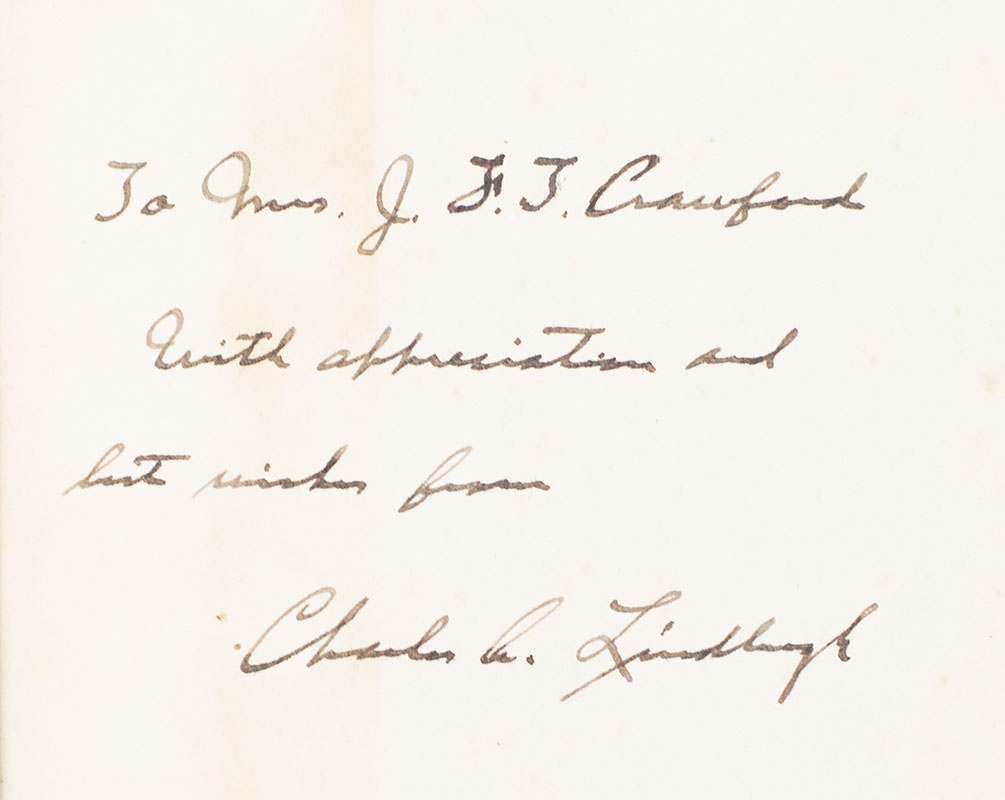 To Mrs. J. F. T. Crawford
With appreciation and
best wishes from
Charles A. Lindbergh